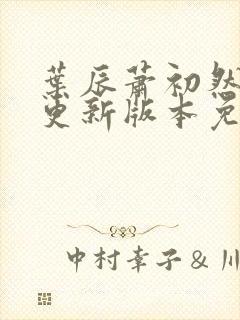 葉辰蕭初然
更新版本免
中村幸子&川